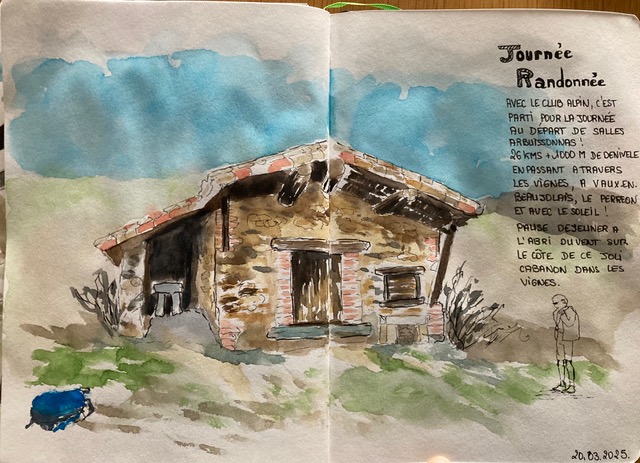 Journée
Randonnée
AVEC LE CLUB ALPIN, C'EST
PARTI POUR LA JOURNÉE
AU DÉPART DE SALLES
ARBUISSONNAS !
26 KMS + 1000 M DE DENIVELE
EN PASSANT A TRAVERS
LES VIGNES, A VAUX EN
BEAUJOLAIS, LE PERREON
ET AVEC LE SOLEIL !
PAUSE DEJEUNER A
L'ABRI DU VENT SUR
LE CÔTE DE CE JOLI
CABANON DANS LES
VIGNES.
20.03.2025.